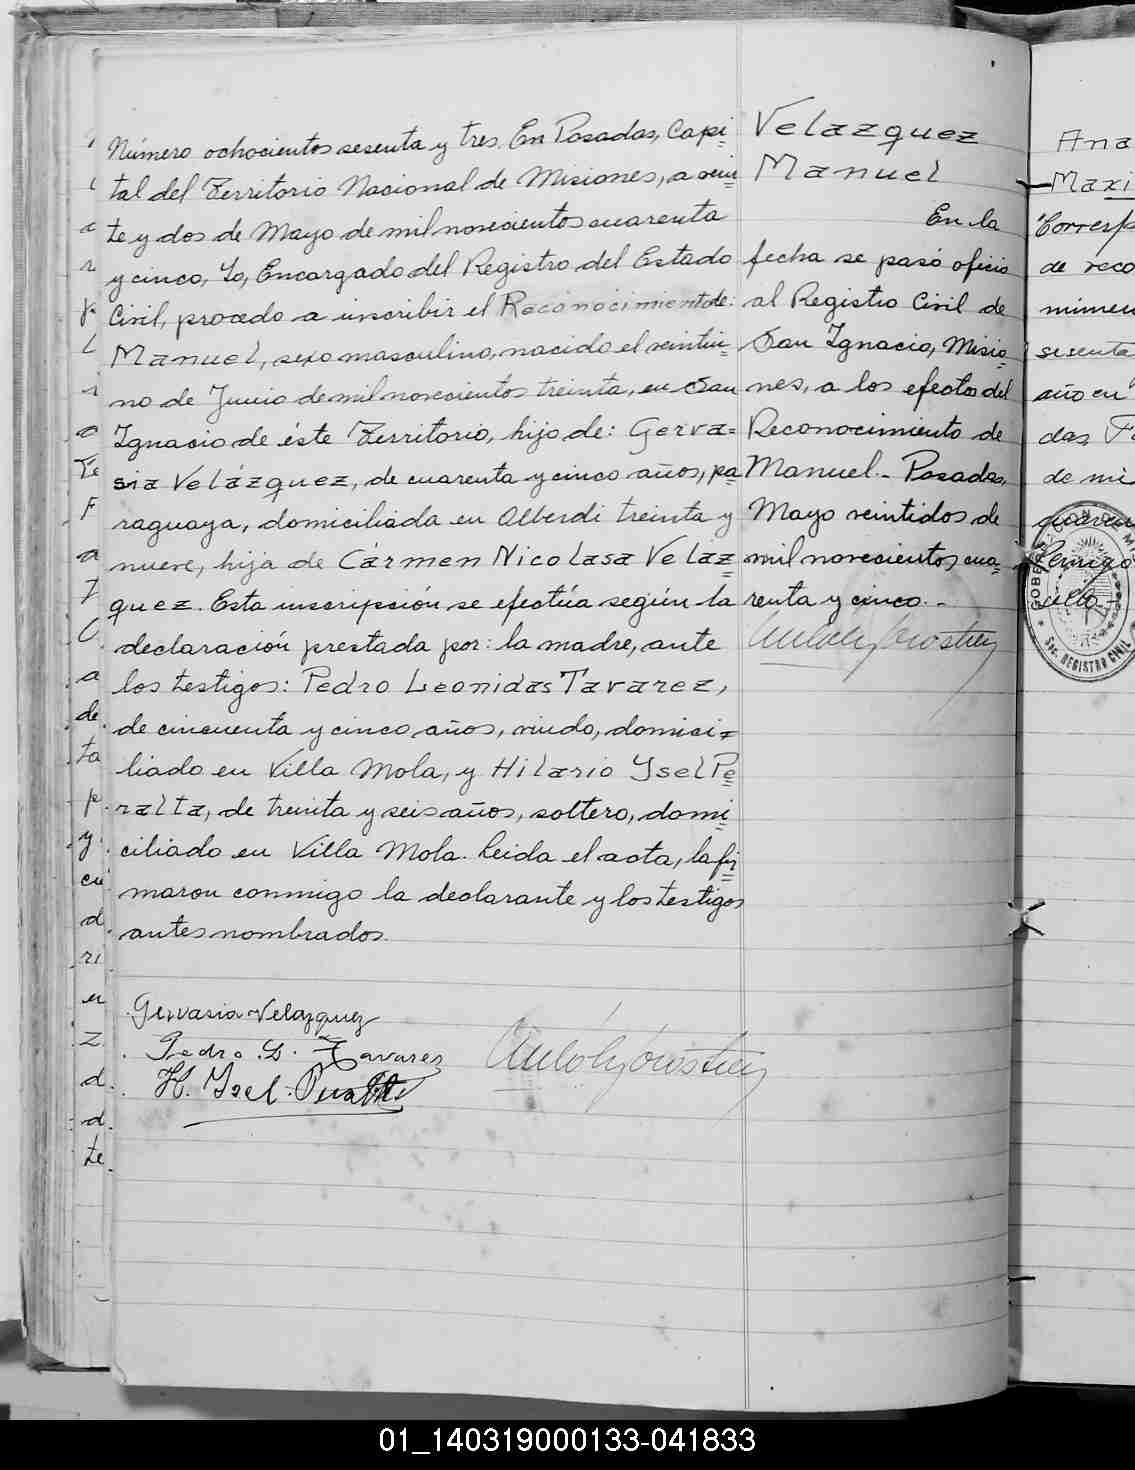 Número ochocientos sesenta y tres. En Posadas, Capi=
tal del Territorio Nacional de Misiones, a vein=
te y dos de Mayo de mil novecientos cuarenta
y cinco, Yo, Encargado del Registro del Estado
Civil, procedo a inscribir el Reconocimiento de:
Manuel, sexo masculino, nacido el veintiu=
no de Junio de mil novecientos treinta, en San
Ignacio de éste Territorio, hijo de: Gerva=
sia Velázquez, de cuarenta y cinco años, pa=
raguaya, domiciliada en Alberdi treinta y
nueve, hija de Cármen Nicolasa Velaz=
quez. Esta inscripción se efectúa según la
declaración prestada por: la madre, ante
los testigos: Pedro Leonidas Tavarez,
de cincuenta y cinco años, viudo, domici=
liado en Villa Mola, y Hilario Ysel Pe=
ralta, de treinta y seis años, soltero, domi=
ciliado en Villa Mola. Leida el acta, la fir=
maron conmigo la declarante y los testigos
antes nombrados.
Gervasia Velazquez
Pedro L. Tavarez
H. Ysel Peralta
Velazquez
Manuel
En la
fecha se pasó oficio
al Registro Civil de
San Ignacio, Misio=
nes, a los efectos del
Reconocimiento de
Manuel.- Posadas,
Mayo veintidos de
mil novecientos cua=
renta y cinco.-
Ana
Maxi
Corresp
de reco
númer
sesenta
año en
das
de mi
SEC. REGISTRO CIVIL
01_140319000133-041833